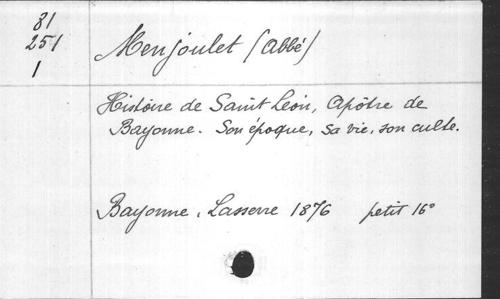 81
251
1
Menjoulet (Abbé)
Histoire de Saint Léon, Apôtre de
Bayonne. Son époque, sa vie, son culte.
Bayonne, Lasserre 1876 petit 16°